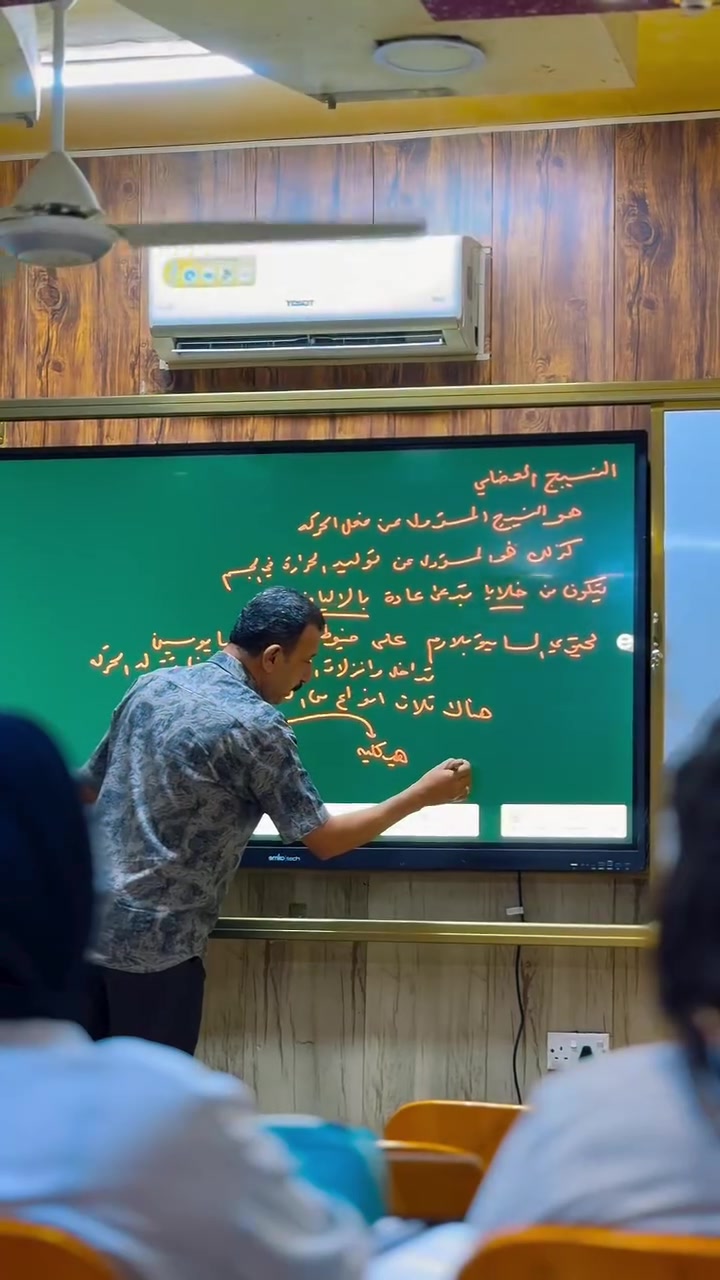 TOSOT
النسيج العضلي
هو النسيج المسؤول عن فعل الحركه
كذلك هو المسؤول عن توليد الحرارة في الجسم
يتكون من خلايا تدعى عادة بالاليا
يحتوي السايتوبلازم على خيوط مايوسين
تداخل وانزلاق تولد الحركه
هناك ثلاث انواع من
هيكليه
smile tech